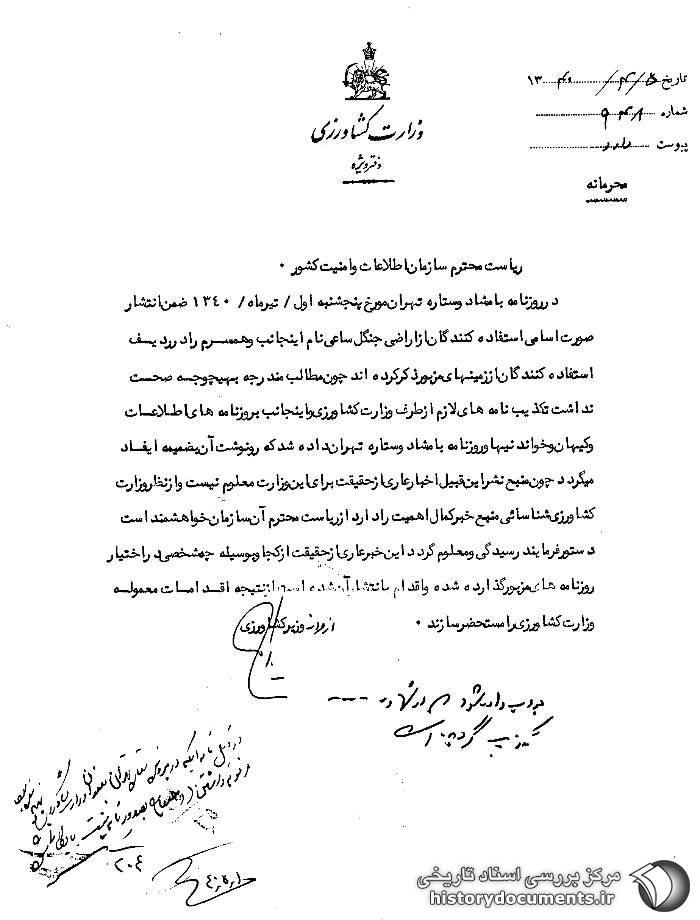 تاریخ ۱۳۴۰/۴/۵
شماره ۹۴۸۱
پیوست دارد
محرمانه
وزارت کشاورزی
دفتر ویژه
ریاست محترم سازمان اطلاعات و امنیت کشور ۰
در روزنامه بامشاد و ستاره تهران مورخ پنجشنبه اول / تیرماه / ۱۳۴۰ ضمن انتشار
صورت اسامی استفاده کنندگان از اراضی جنگل ساعی نام اینجانب و همسرم را در ردیف
استفاده کنندگان از زمینهای مزبور ذکر کرده اند چون مطالب مندرجه بهیچوجه صحت
نداشت تکذیب نامه های لازم از طرف وزارت کشاورزی و اینجانب بروزنامه های اطلاعات
و کیهان و خواندنیها و روزنامه بامشاد و ستاره تهران داده شد که رونوشت آن بضمیمه ایفاد
میگردد چون منبع نشر این قبیل اخبار عاری از حقیقت برای این وزارت معلوم نیست و از نظر وزارت
کشاورزی شناسائی منبع خبر کمال اهمیت را دارد از ریاست محترم آن سازمان خواهشمند است
دستور فرمایند رسیدگی و معلوم گردد این خبر عاری از حقیقت از کجا و بوسیله چه شخصی در اختیار
روزنامه های مزبور گذارده شده و اقدام بانتشار آن شده است از نتیجه اقدامات معموله
وزارت کشاورزی را مستحضر سازند ۰
از طرف وزیر کشاورزی
تکذیب گردیده است
۲۰۴
مرکز بررسی اسناد تاریخی
historydocuments.ir